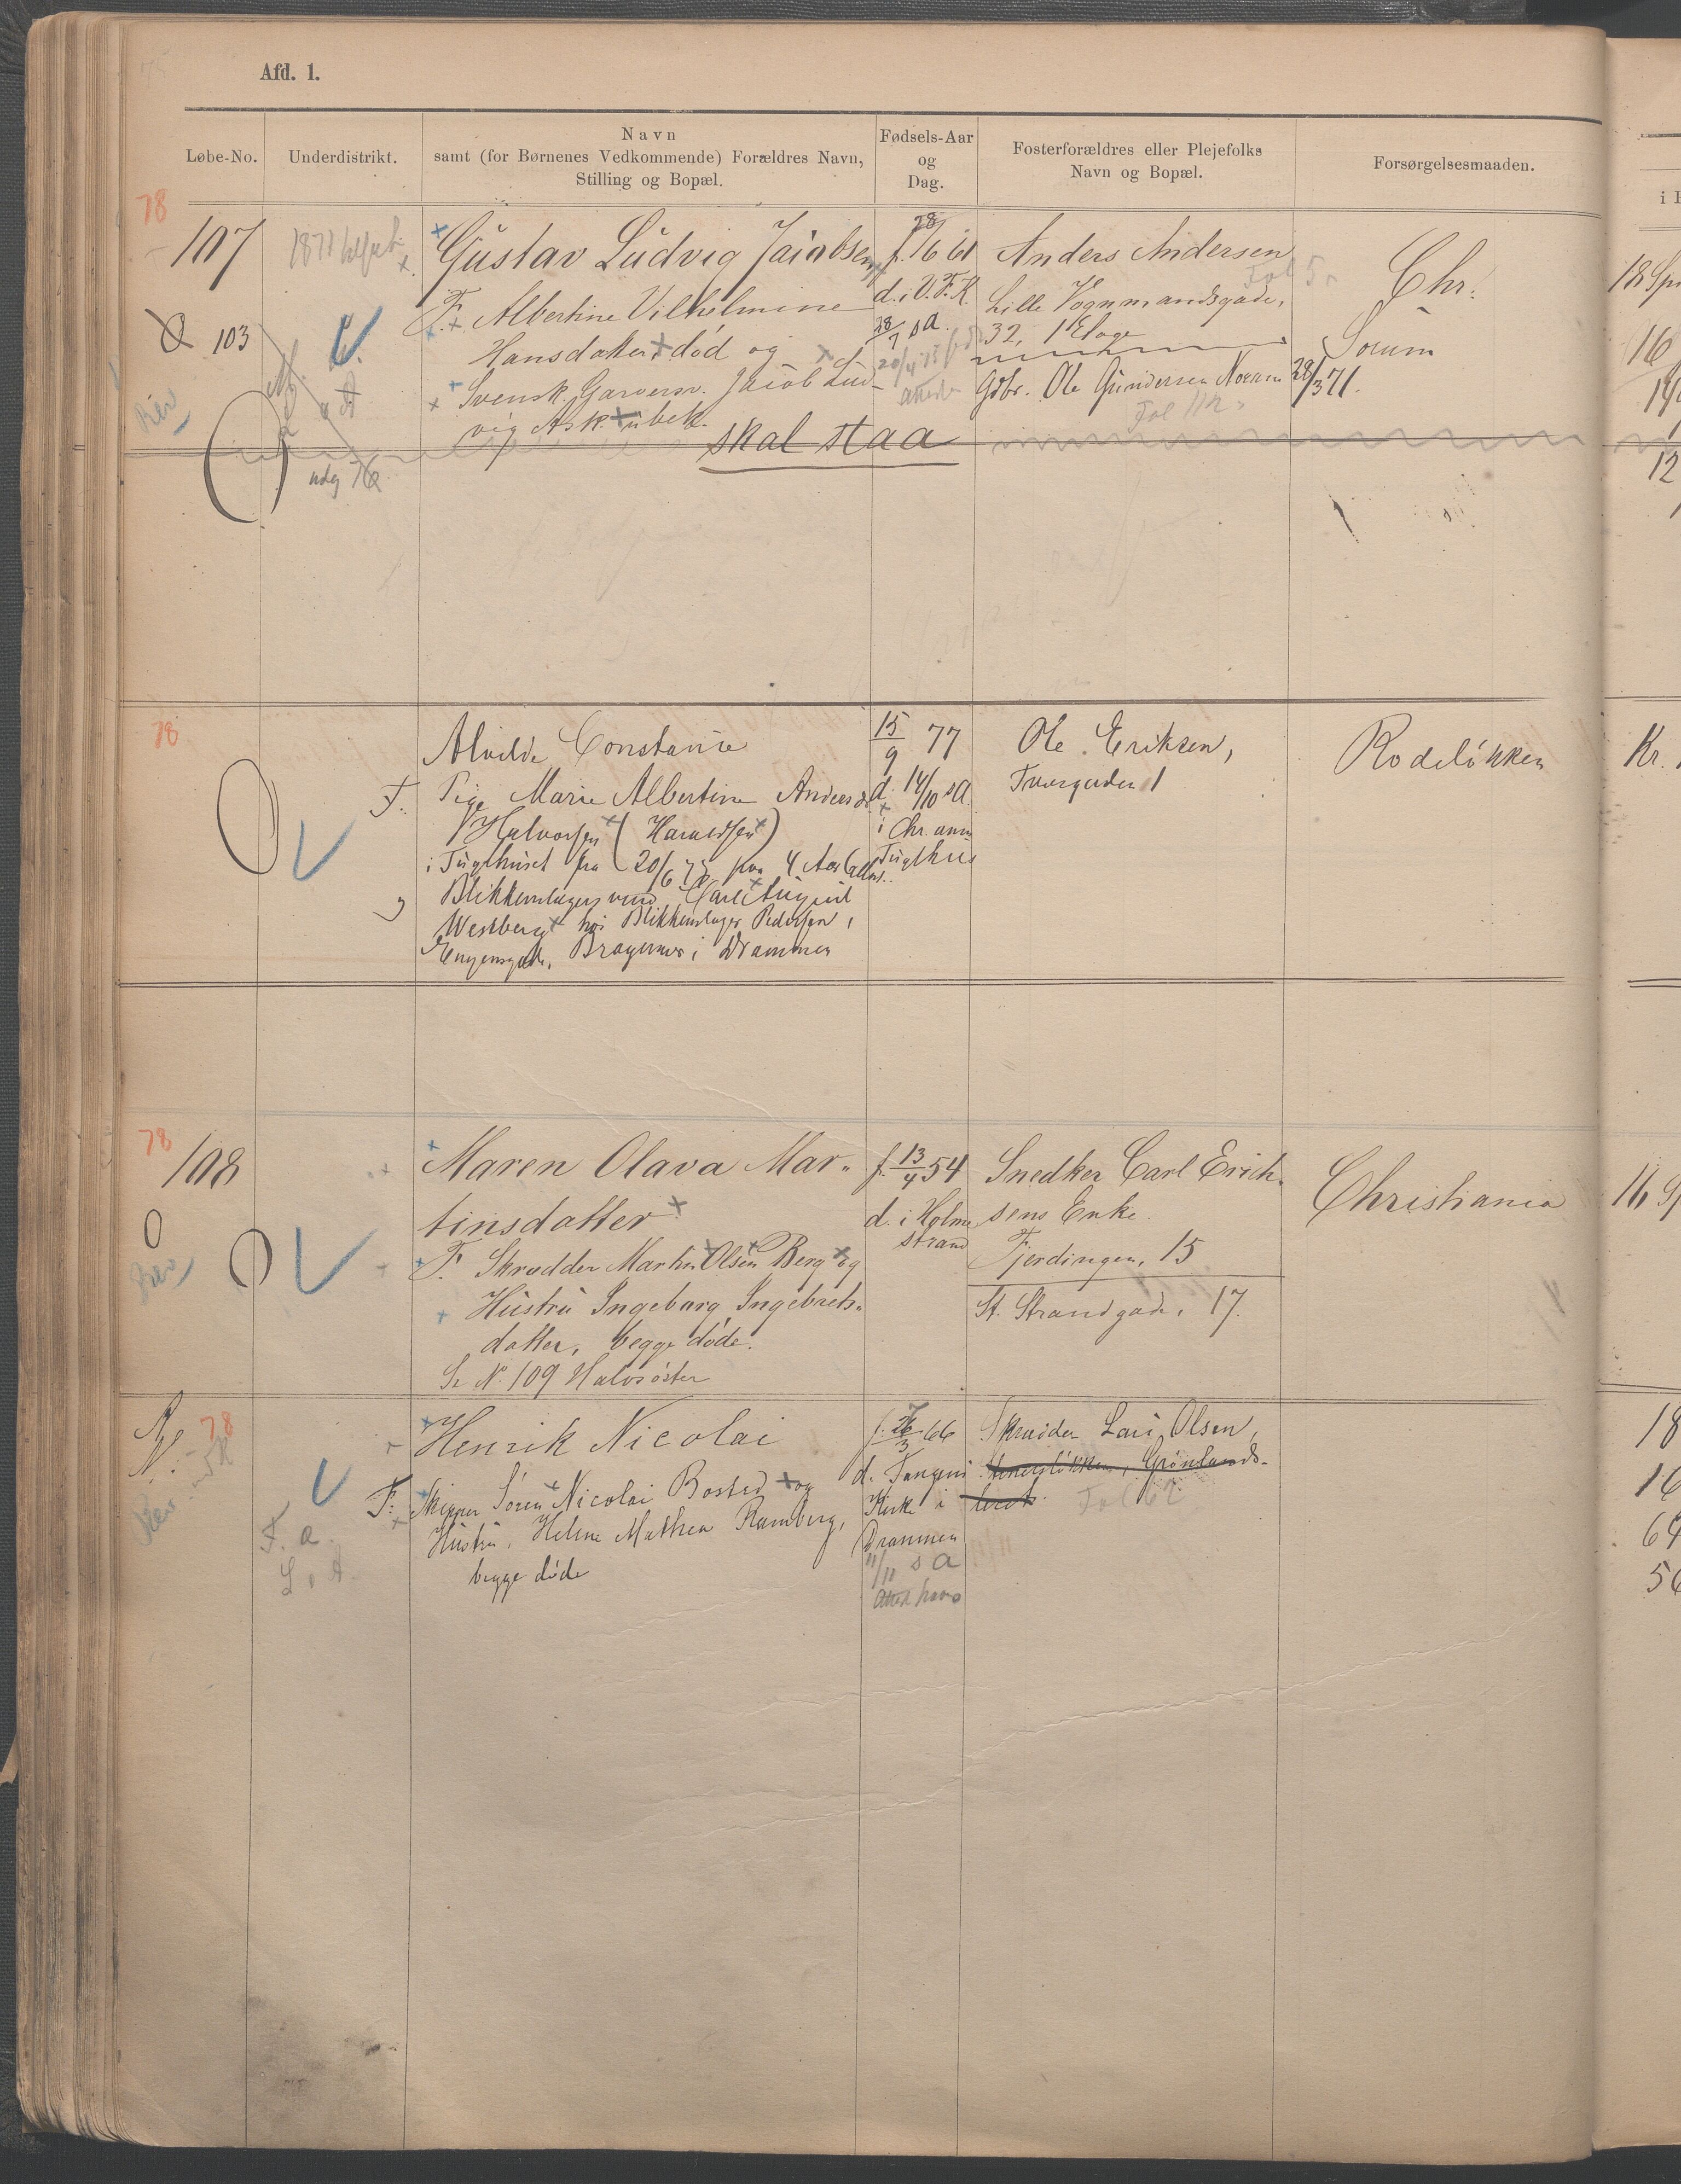 Afd. 1.
Løbe-No.
Underdistrikt.
Navn
samt (for Børnenes Vedkommende) Forældres Navn,
Stilling og Bopæl.
Fødsels-Aar
og
Dag.
Fosterforældres eller Plejefolks
Navn og Bopæl.
Forsørgelsesmaaden.
78
107
103
Rev
udg 76
Gustav Ludvig Jacobsen
F. Albertine Vilhelmine
Hansdatter, død og
Svensk. Garversv. Jacob Lud-
vig Ask. ubek.
skal staa
f. 28/6 61
d. i V. F. K.
28/7 s A.
Anders Andersen
Lille Vognmandsgade,
32, 1 Etage
Gdbr. Ole Gundersen
28/3 71.
Chr.
Sørum
18 Sp
16
12
78
Alvilde Constance
F. Pige Marie Albertine Andersd.
Halvorsen (Haraldsen)
i Tugthuset fra 20/6 78 paa 4 Aar
og Blikkenslagersvend Carl August
Westberg hos Blikkenslager Pedersen,
Engensgade, Bragernes i Drammen
15/9 77
d. 14/10 s A.
i Chr. anm
Tugthus
Ole Eriksen,
Tvergaden 1
Rodeløkken
Kr.
78
108
0
Rev
Maren Olava Mar-
tinsdatter
F. Skrædder Martin Olsen Berg og
Hustru Ingeborg Ingebrets-
datter, begge døde.
Se No. 109 Halvsøster
f. 13/4 54
d. i Holme
strand
Snedker Carl Erich-
sens Enke.
Fjerdingen, 15
St. Strandgade, 17.
Christiania
16 S
78
Rev
F. a.
Henrik Nicolai
F. Skipper Søren Nicolai Bosted og
Hustru, Helene Mathea Ramberg,
begge døde
f. 26/3 66
d. Tangens
Kirke i
Drammen
11/11 s A
Skrædder Lars Olsen,
Grønlands-
leret.
Fol 62
18
16
64